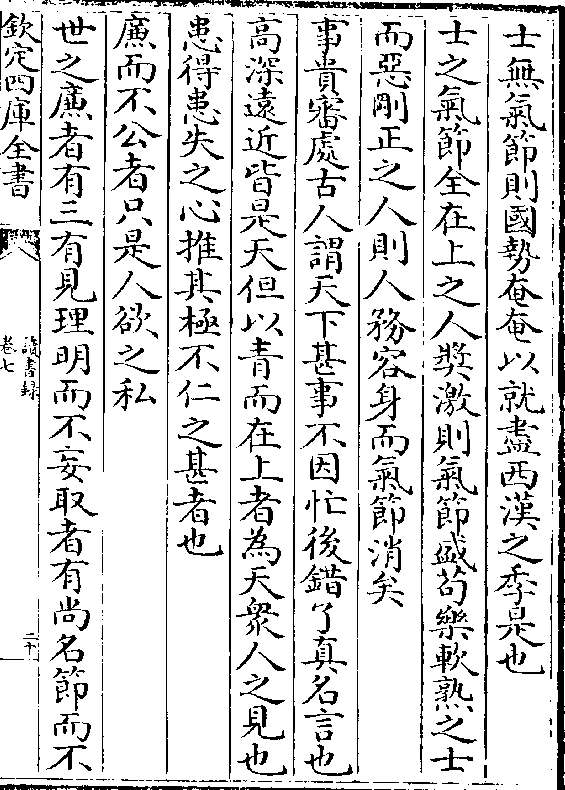 士無氣節則國勢奄奄以就盡西漢之季是也
士之氣節全在上之人奬激則氣節盛苟樂軟熟之士
而惡剛正之人則人務容身而氣節消矣
事貴審處古人謂天下甚事不因忙後錯了真名言也
高深遠近皆是天但以青而在上者為天衆人之見也
患得患失之心推其極不仁之甚者也
廉而不公者只是人欲之私
世之廉者有三有見理明而不妄取者有尚名節而不
欽定四庫全書
讀書録
卷七
二十